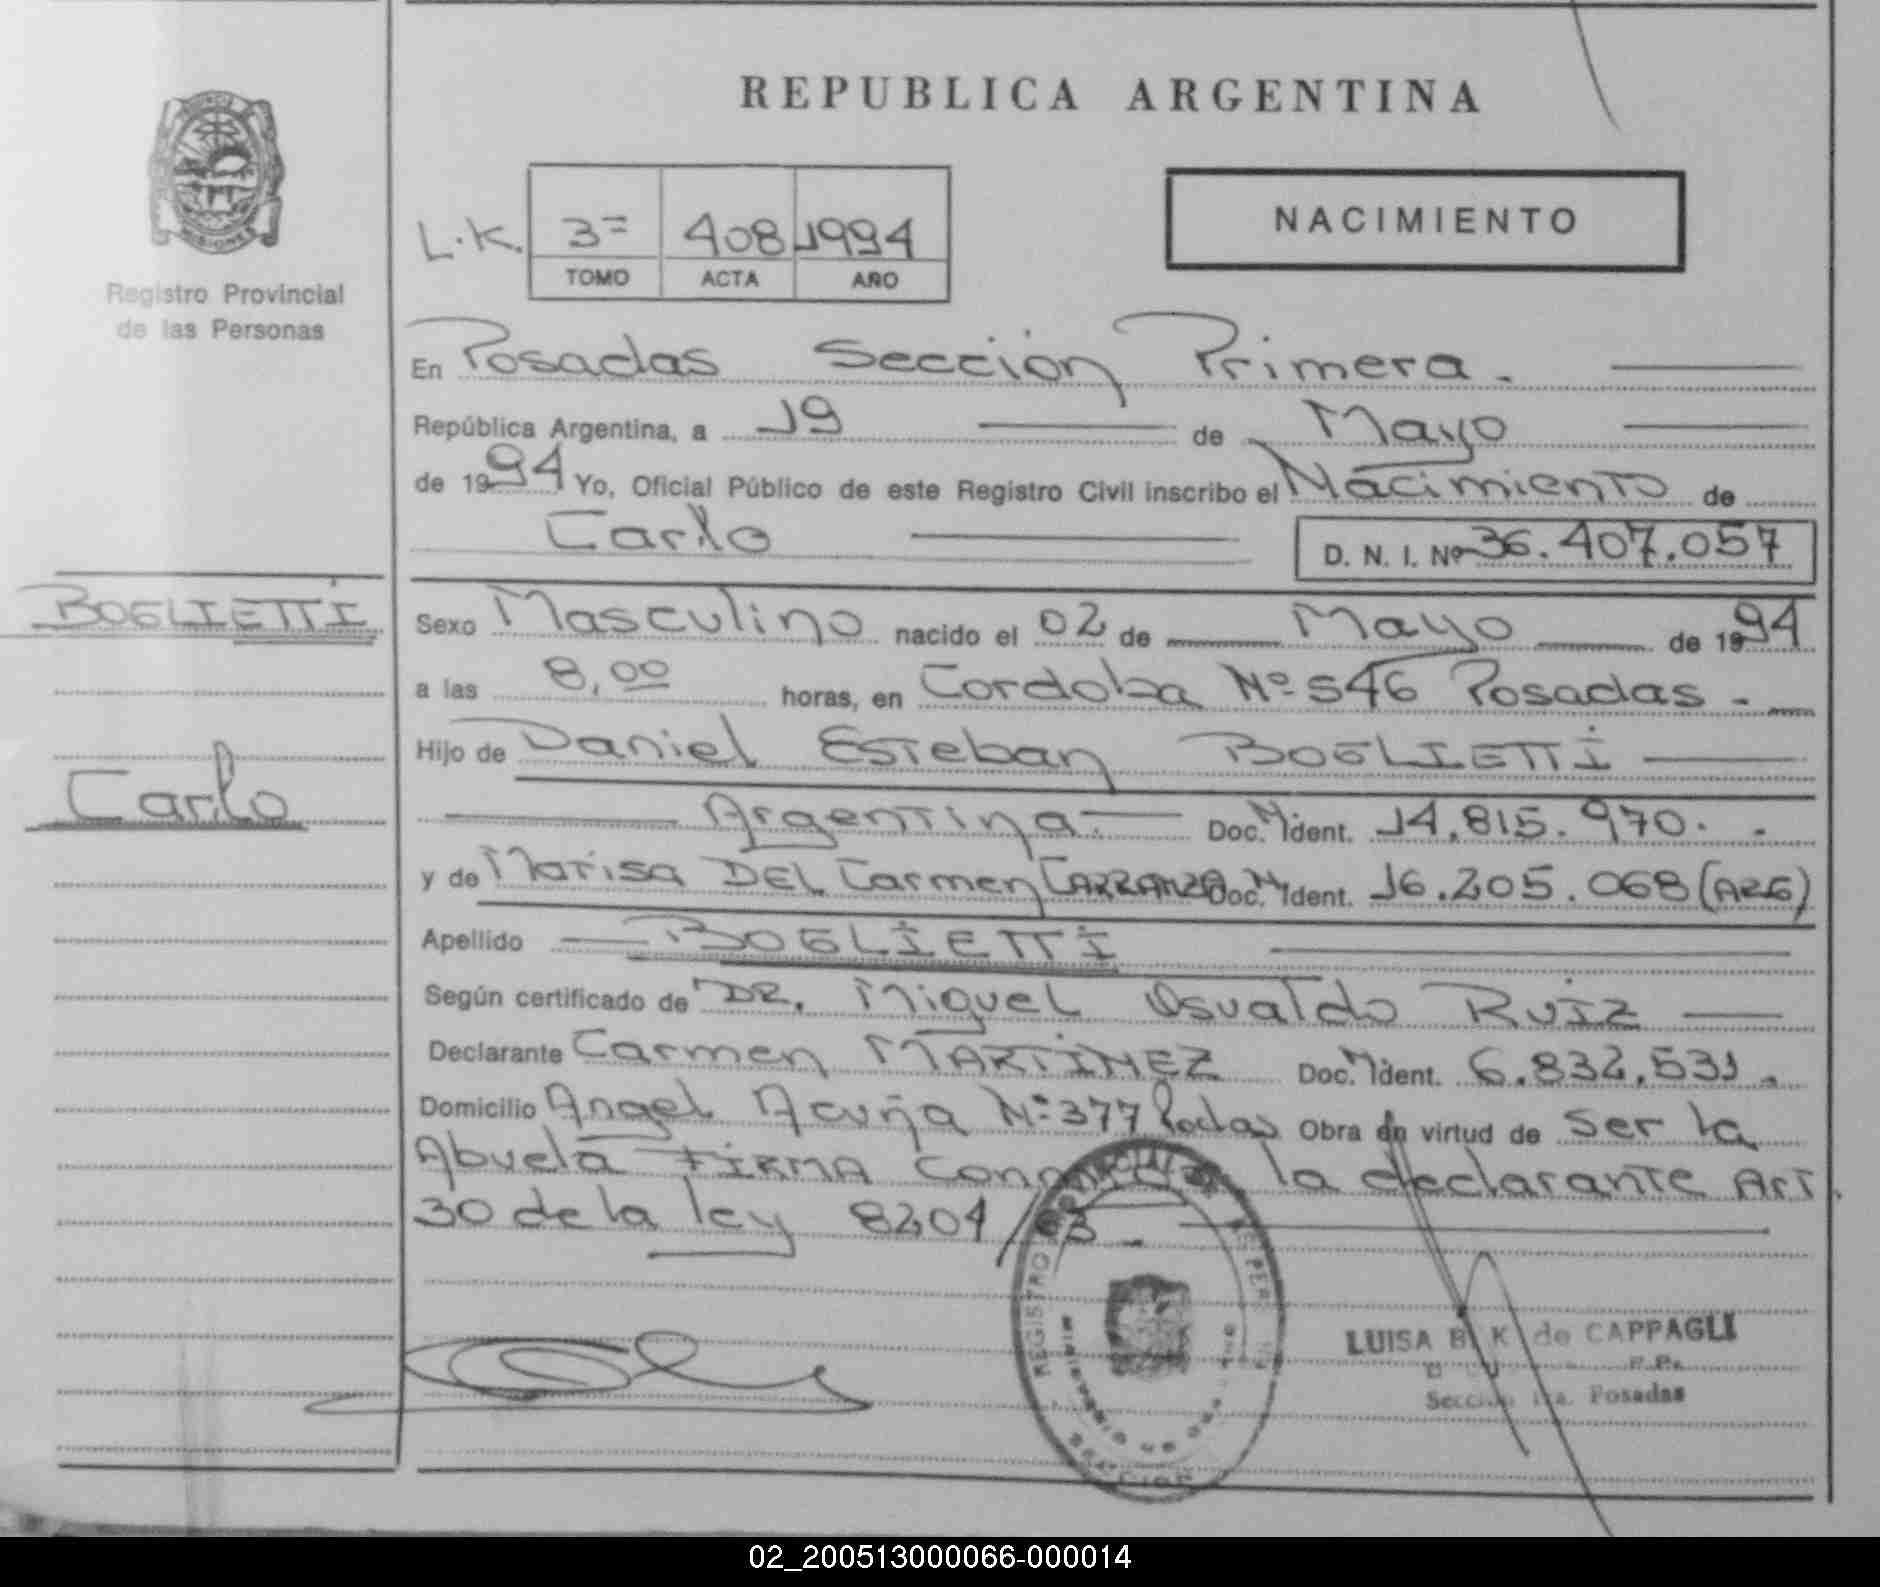 REPUBLICA ARGENTINA
MISIONES
Registro Provincial
de las Personas
L.K.
3=
408
1994
TOMO
ACTA
AÑO
NACIMIENTO
En Posadas Sección Primera.
República Argentina, a 19 de Mayo
de 1994 Yo, Oficial Público de este Registro Civil inscribo el Nacimiento de
Carlo
D. N. I. Nº 36.407.057
BOGLIETTI
Carlo
Sexo Masculino nacido el 02 de Mayo de 1994
a las 8,00 horas, en Cordoba Nº 546 Posadas -
Hijo de Daniel Esteban BOGLIETTI
Argentina. Doc. N Ident. 14.815.970.
y de Marisa DEL Carmen CARRANZA Doc. N Ident. 16.205.068 (ARG)
Apellido BOGLIETTI
Según certificado de DR. Miguel Osvaldo RUIZ
Declarante Carmen MARTINEZ Doc. N Ident. 6.832.531.
Domicilio Angel Acuña Nº 377 Posdas Obra en virtud de ser la
Abuela FIRMA la declarante Art.
30 de la ley 8204/63 -
REGISTRO
SECCION
LUISA B. K. de CAPPAGLI
Sección 1ra. Posadas
02_200513000066-000014